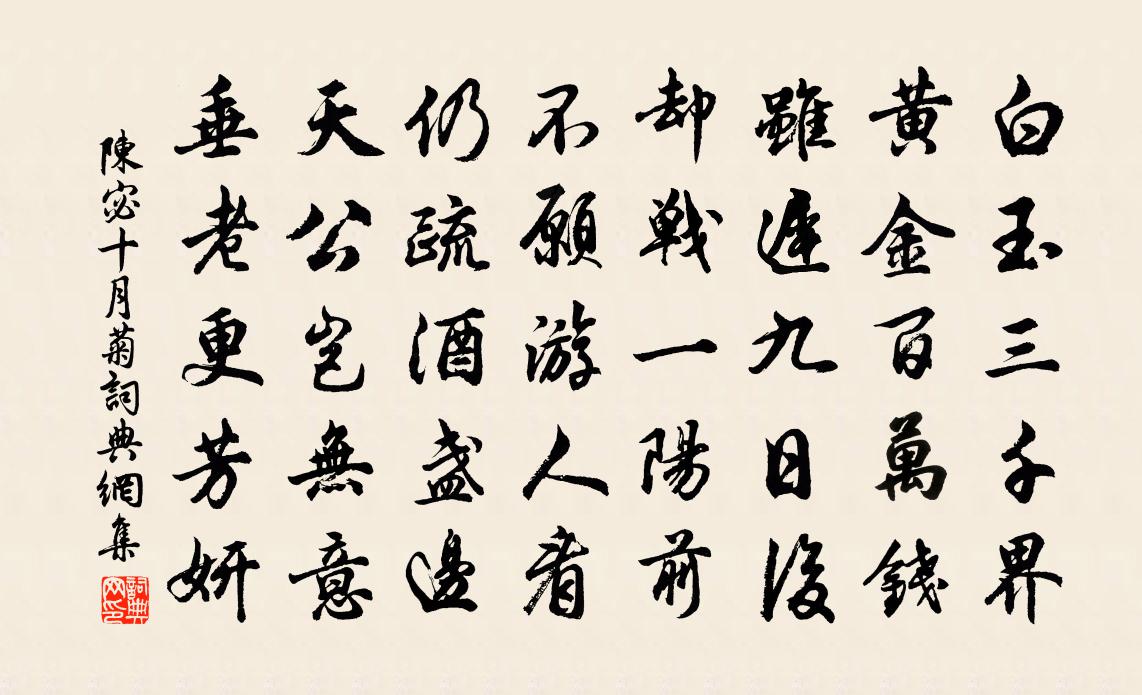 白玉三千界
黃金百萬錢
雖遲九日後
却戰一陽前
不願游人看
仍疏酒盞邊
天公豈無意
垂老更芳妍
陳宓十月菊詞典網集
詞典網印